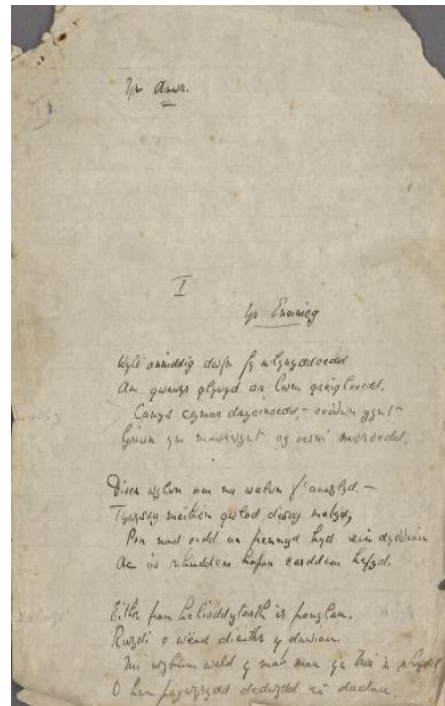 Yr Arwr.
I
Yr Eneiniog
Wylo anniddig dwfn fy mlynyddoedd
Am gwewyr glywyd ar lwm greigleoedd.
Canys cymar drycinoedd,- oeddwn gynt-
Griwn ym mawrwynt ag oerni moroedd.
Dioer wylwn am na welwn f'anwylyd.—
Tywysog meibion gwlad desog mebyd,
Pan nad oedd un pennyd hyd ein dyddiau
Ac i'w rhuddem hafau cerddem hefyd.
Eithr pan heliodd y tarth i'r panylau.
Rwydi o wead dieithr y duwiau.
Mi wybum weld y mab mau yn troi'n rhydd
O hen fagwyrydd dedwydd ei dadau.